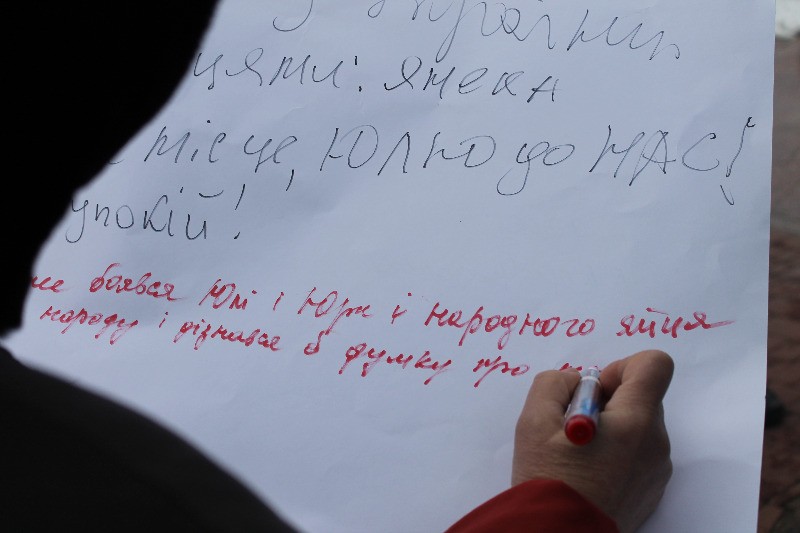 у Україн
цями! янека
місце, Юлю до НАС!
упокій!
не боявся Юлі і Юри і народного яйця
народу і дізнався б думку про